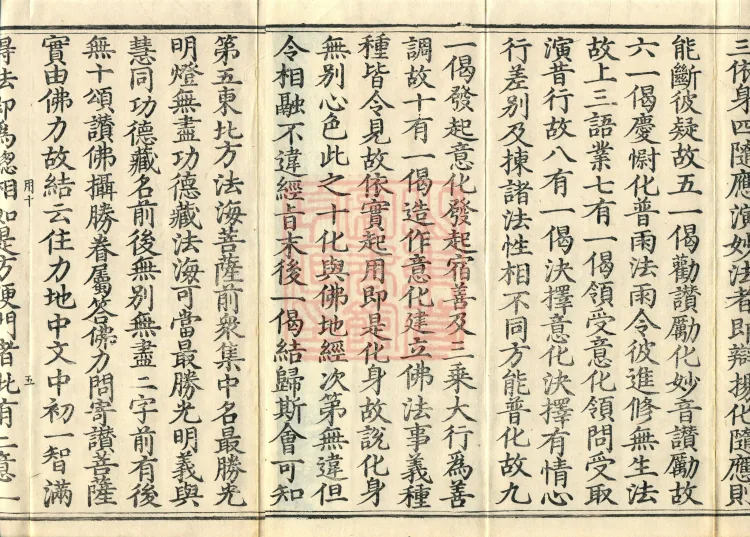 三依身四隨應演妙法者即辯揚化隨應則
能斷彼疑故五一偈勸讚勵化妙音讚勵故
六一偈慶慰化普雨法雨令彼進修無生法
故上三語業七有一偈領受意化領問受取
演昔行故八有一偈決擇意化決擇有情心
行差別及揀諸法性相不同方能普化故九
一偈發起意化發起宿善及三乘大行為善
調故十有一偈造作意化建立佛法事義種
種皆令見故依實起用即是化身故說化身
無別心色此之十化與佛地經次第無違但
令相融不違經旨末後一偈結歸斯會可知
第五東北方法海菩薩前眾集中名最勝光
明燈無盡功德藏法海可當最勝光明義與
慧同功德藏名前後無別無盡二字前有後
無十頌讚佛攝勝眷屬答佛力問寄讚菩薩
實由佛力故結云住力地中文中初一智滿
用十
五
得法即為總相如是方便門者此有二意一